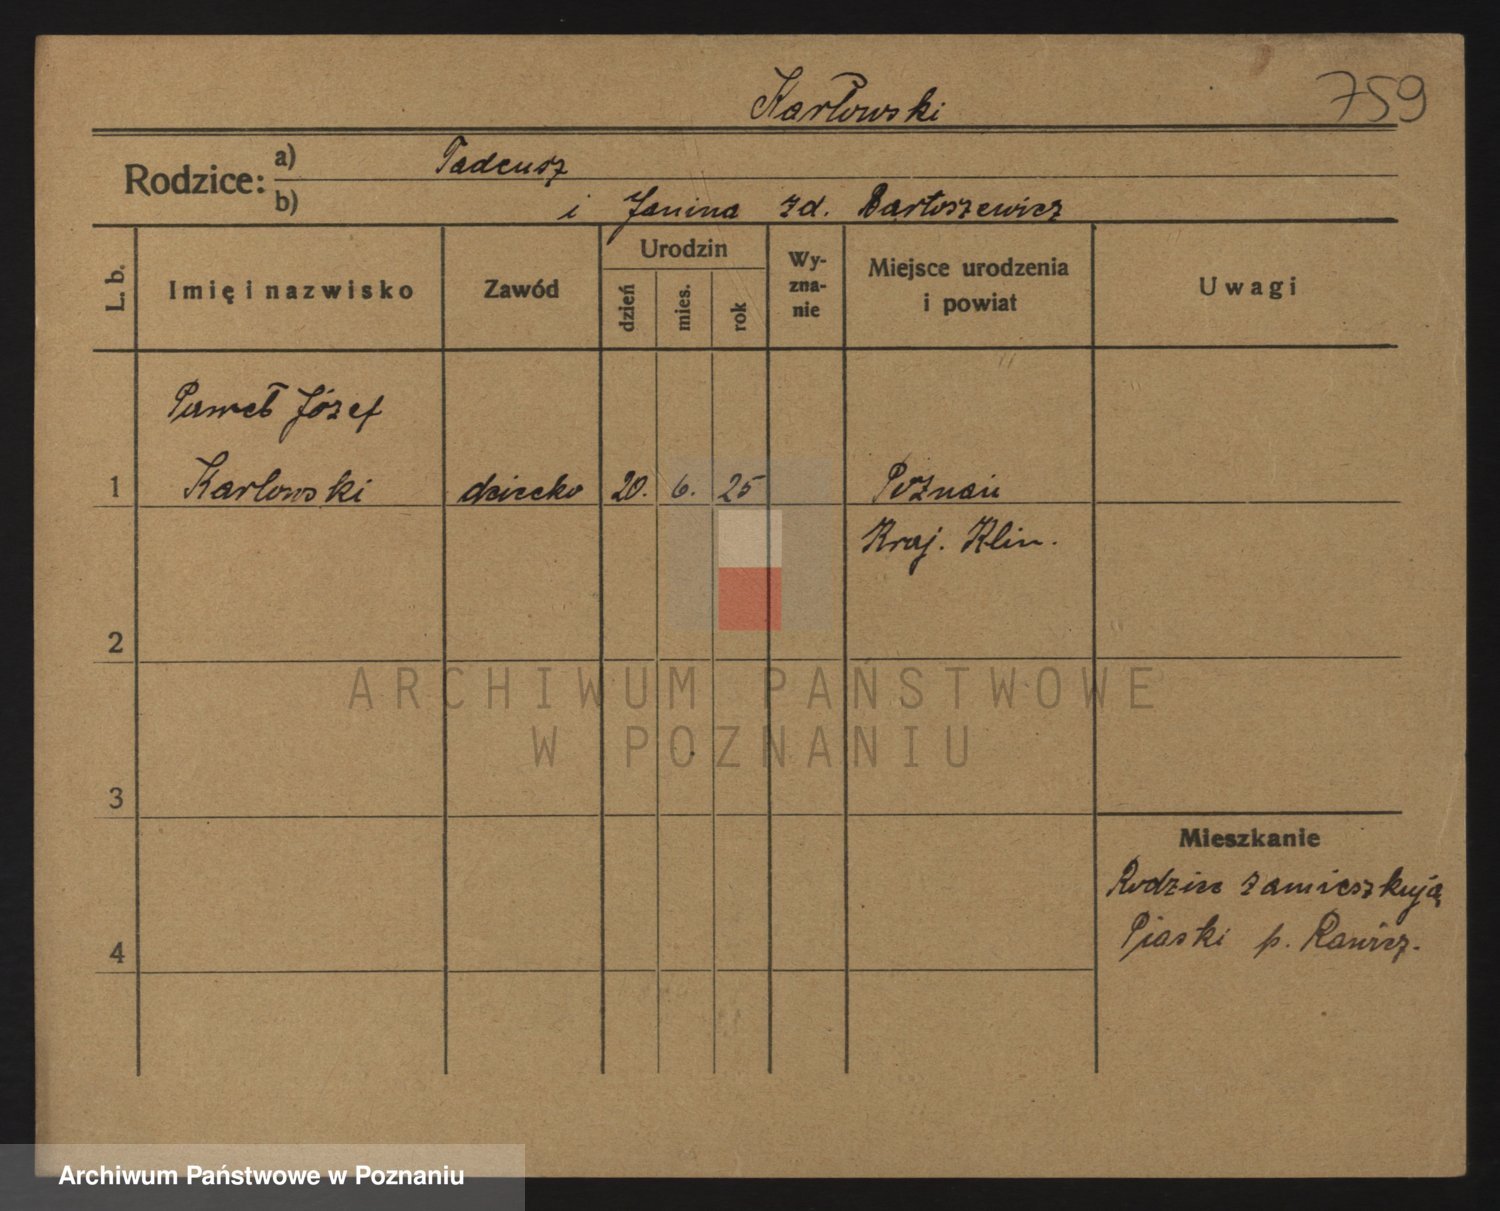 Karłowski
759
Rodzice:
a) Tadeusz
b) i Janina zd. Bartoszewicz
L. b.
Imię i nazwisko
Zawód
Urodzin
dzień
mies.
rok
Wy-
zna-
nie
Miejsce urodzenia
i powiat
Uwagi
Paweł Józef
1 Karłowski dziecko 20. 6. 25 Poznań
Kraj. Klin.
2
ARCHIWUM PAŃSTWOWE
W POZNANIU
3
Mieszkanie
Rodzice zamieszkują
Piaski p. Rawicz.
4
Archiwum Państwowe w Poznaniu